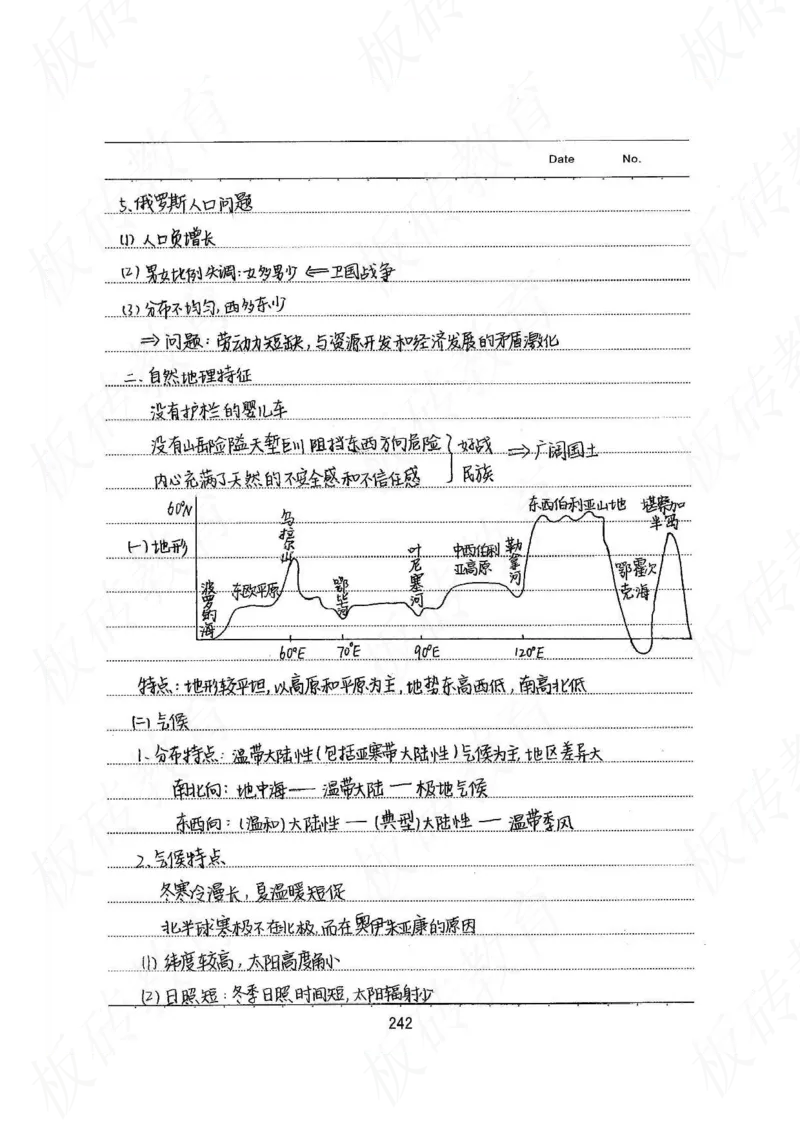 Date No.
5、俄罗斯人口问题
(1) 人口负增长
(2) 男女比例失调:女多男少 ⇐ 卫国战争
(3) 分布不均匀,西多东少
⇒ 问题:劳动力短缺,与资源开发和经济发展的矛盾激化
二、自然地理特征
没有护栏的婴儿车
没有山岳险隘天堑巨川阻挡东西方向危险 } 好战 ⇒ 广阔国土
内心充满了天然的不安全感和不信任感 } 民族
60°N
(一) 地形
波罗的海
东欧平原
乌拉尔山
鄂毕河
叶尼塞河
中西伯利亚高原
勒拿河
东西伯利亚山地
鄂霍次克海
堪察加半岛
60°E 70°E 90°E 120°E
特点:地形较平坦,以高原和平原为主,地势东高西低,南高北低
(二) 气候
1、分布特点:温带大陆性(包括亚寒带大陆性)气候为主,地区差异大
南北向:地中海 — 温带大陆 — 极地气候
东西向:(温和)大陆性 — (典型)大陆性 — 温带季风
2、气候特点
冬寒冷漫长,夏温暖短促
北半球寒极不在北极,而在奥伊米亚康的原因
(1) 纬度较高,太阳高度角小
(2) 日照短:冬季日照时间短,太阳辐射少
242
板砖教育